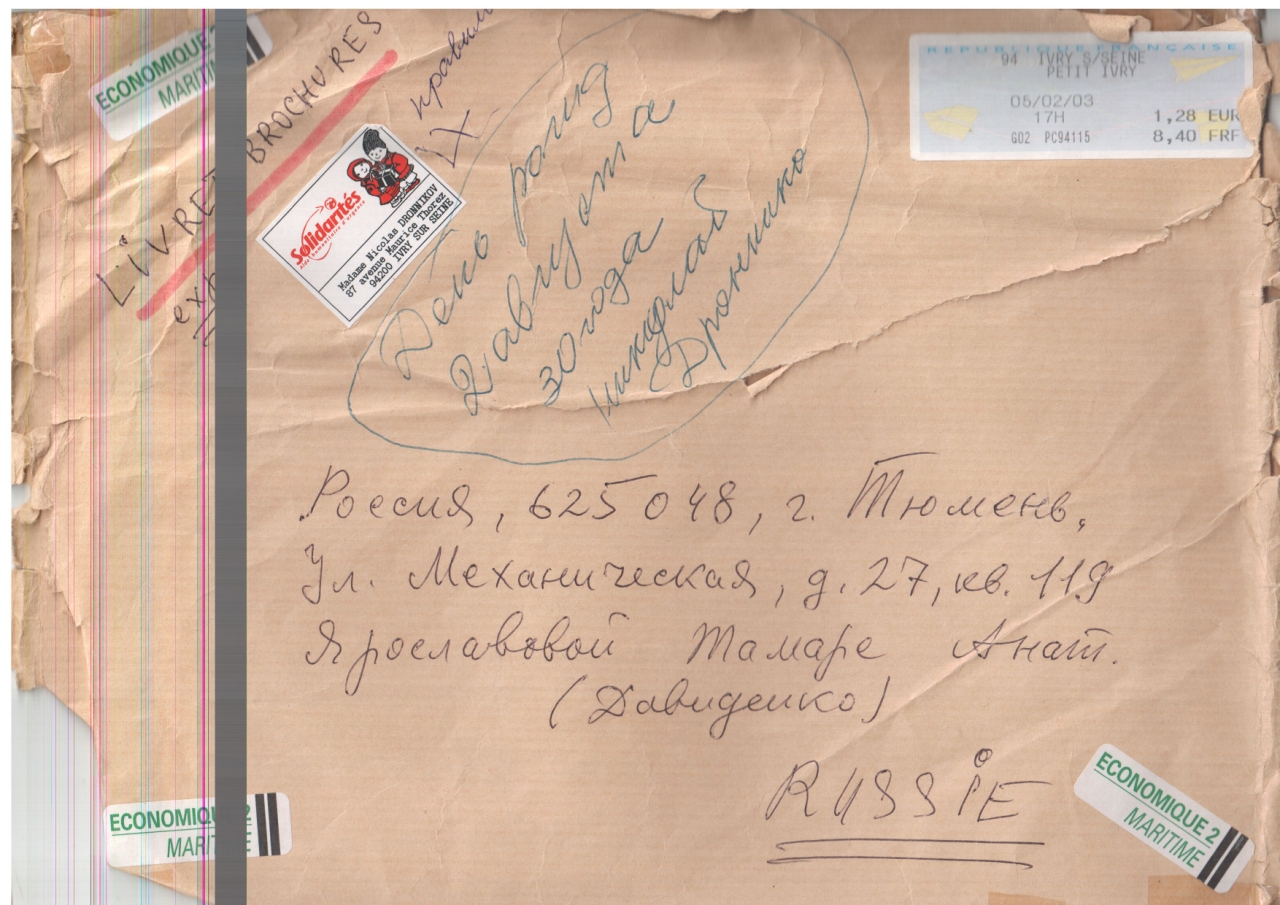 ECONOMIQUE 2
MARITIM
LIVRE
BROCHURES
exp
правим
REPUBLIQUE FRANÇAISE
94 IVRY S/SEINE
PETIT IVRY
05/02/03
17H 1,28 EUR
G02 PC94115 8,40 FRF
Solidarités
Aide humanitaire d'urgence
Madame Nicolas DRONNIKOV
87 avenue Maurice Thorez
94200 IVRY SUR SEINE
День рожд
2 августа
30 года
Николай
Дронников
Россия, 625048, г. Тюмень,
Ул. Механическая, д. 27, кв. 119
Ярославовой Тамаре Анат.
(Давиденко)
RUSSIE
ECONOMIQU 2
MARITIME
ECONOMIQUE 2
MARITIME